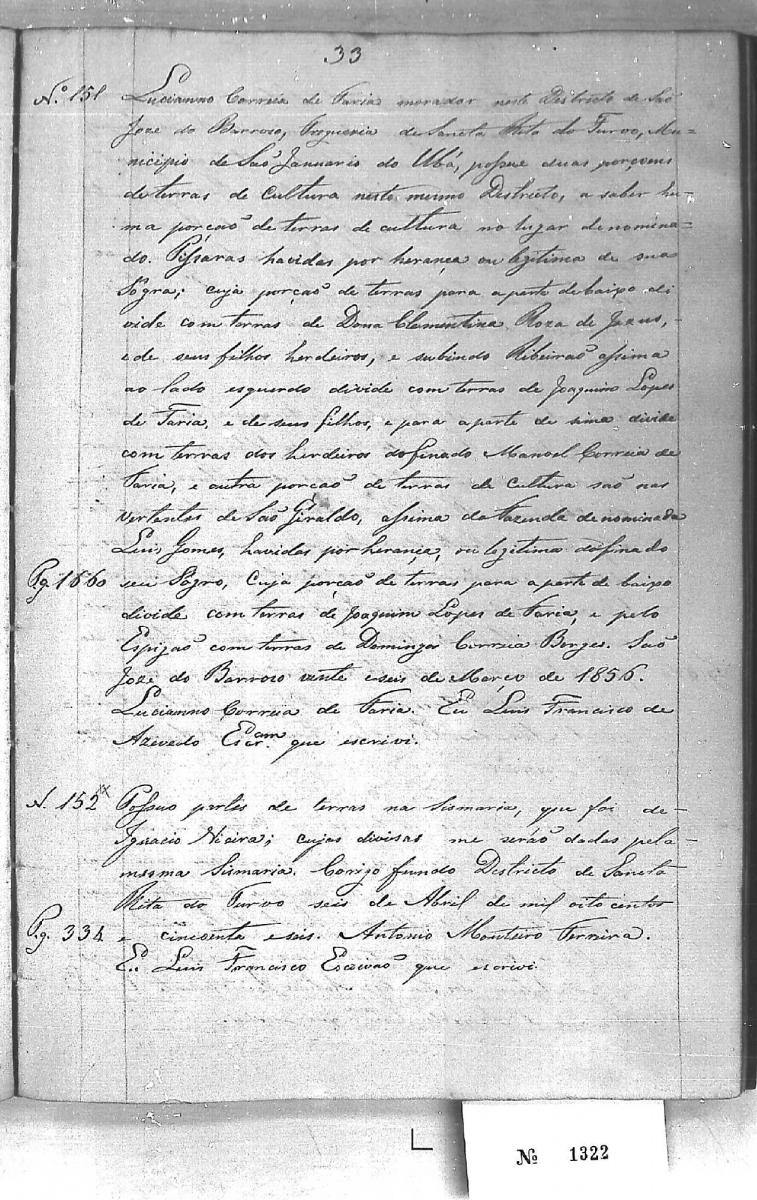 33
N.º 151 Lucianno Correia de Faria morador neste Districto de Saõ
Joze do Barrozo, Fregueria de Sancta Rita do Turvo, Mu-
nicipio de Saõ Januario do Ubá, possue duas porçoens
de terras de Cultura neste mesmo Districto, a saber hu-
ma porçaõ de terras de cultura no lugar denomina-
do. havidas por herança ou legitima de sua
Sogra; cuja porçaõ de terras para aparte debaixo di
vide com terras de Dona Clementina Roza de Jezus,
e de seus filhos herdeiros, e subindo Ribeiraõ assima
ao lado esquerdo divide com terras de Joaquim Lopes
de Faria, e de seus filhos, e para aparte de sima divide
com terras dos herdeiros dofinado Manoel Correia de
Faria, e outra porcaõ de terras de Cultura saõ nas
vertentes de Saõ Giraldo, assima da Fazenda denominada
Luis Gomes, havidas por herança, ou legitima dofinado
Pg. 1660 seu Sogro, Cuja porçaõ de terras para aparte de baixo
divide com terras de Joaquim Lopes de Faria, e pelo
Espigaõ com terras de Domingos Correia Borges. Saõ
Joze do Barrozo vinte eseis de Março de 1856.
Lucianno Correia de Faria. Eu Luis Francisco de
Azevedo Escram. que escrivi.
N. 152 Possuo partes de terras na Sismaria, que foi de-
Ignacio; cujas divisas me seráõ dadas pela
mesma Sismaria. Corigo fundo Districto de Sancta
Rita do Turvo seis de Abril de mil oito centos
Pg. 334 e cincoenta eseis. Antonio Monteiro Ferreira.
Eu Luis Francisco Escrivaõ que escrivi.
Nº 1322